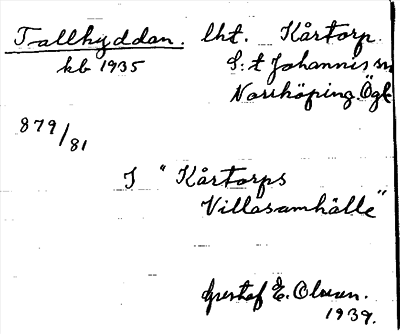 Tallhyddan. lht. Kårtorp.
kb 1935 S:t Johannis sn
Norrköping Ögl
879/81
I "Kårtorps
Villasamhälle"
Gustaf E. Olsson.
1939.